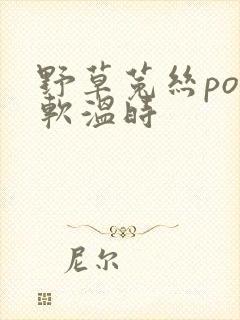 野草菟丝po
軟溫時
尼尔